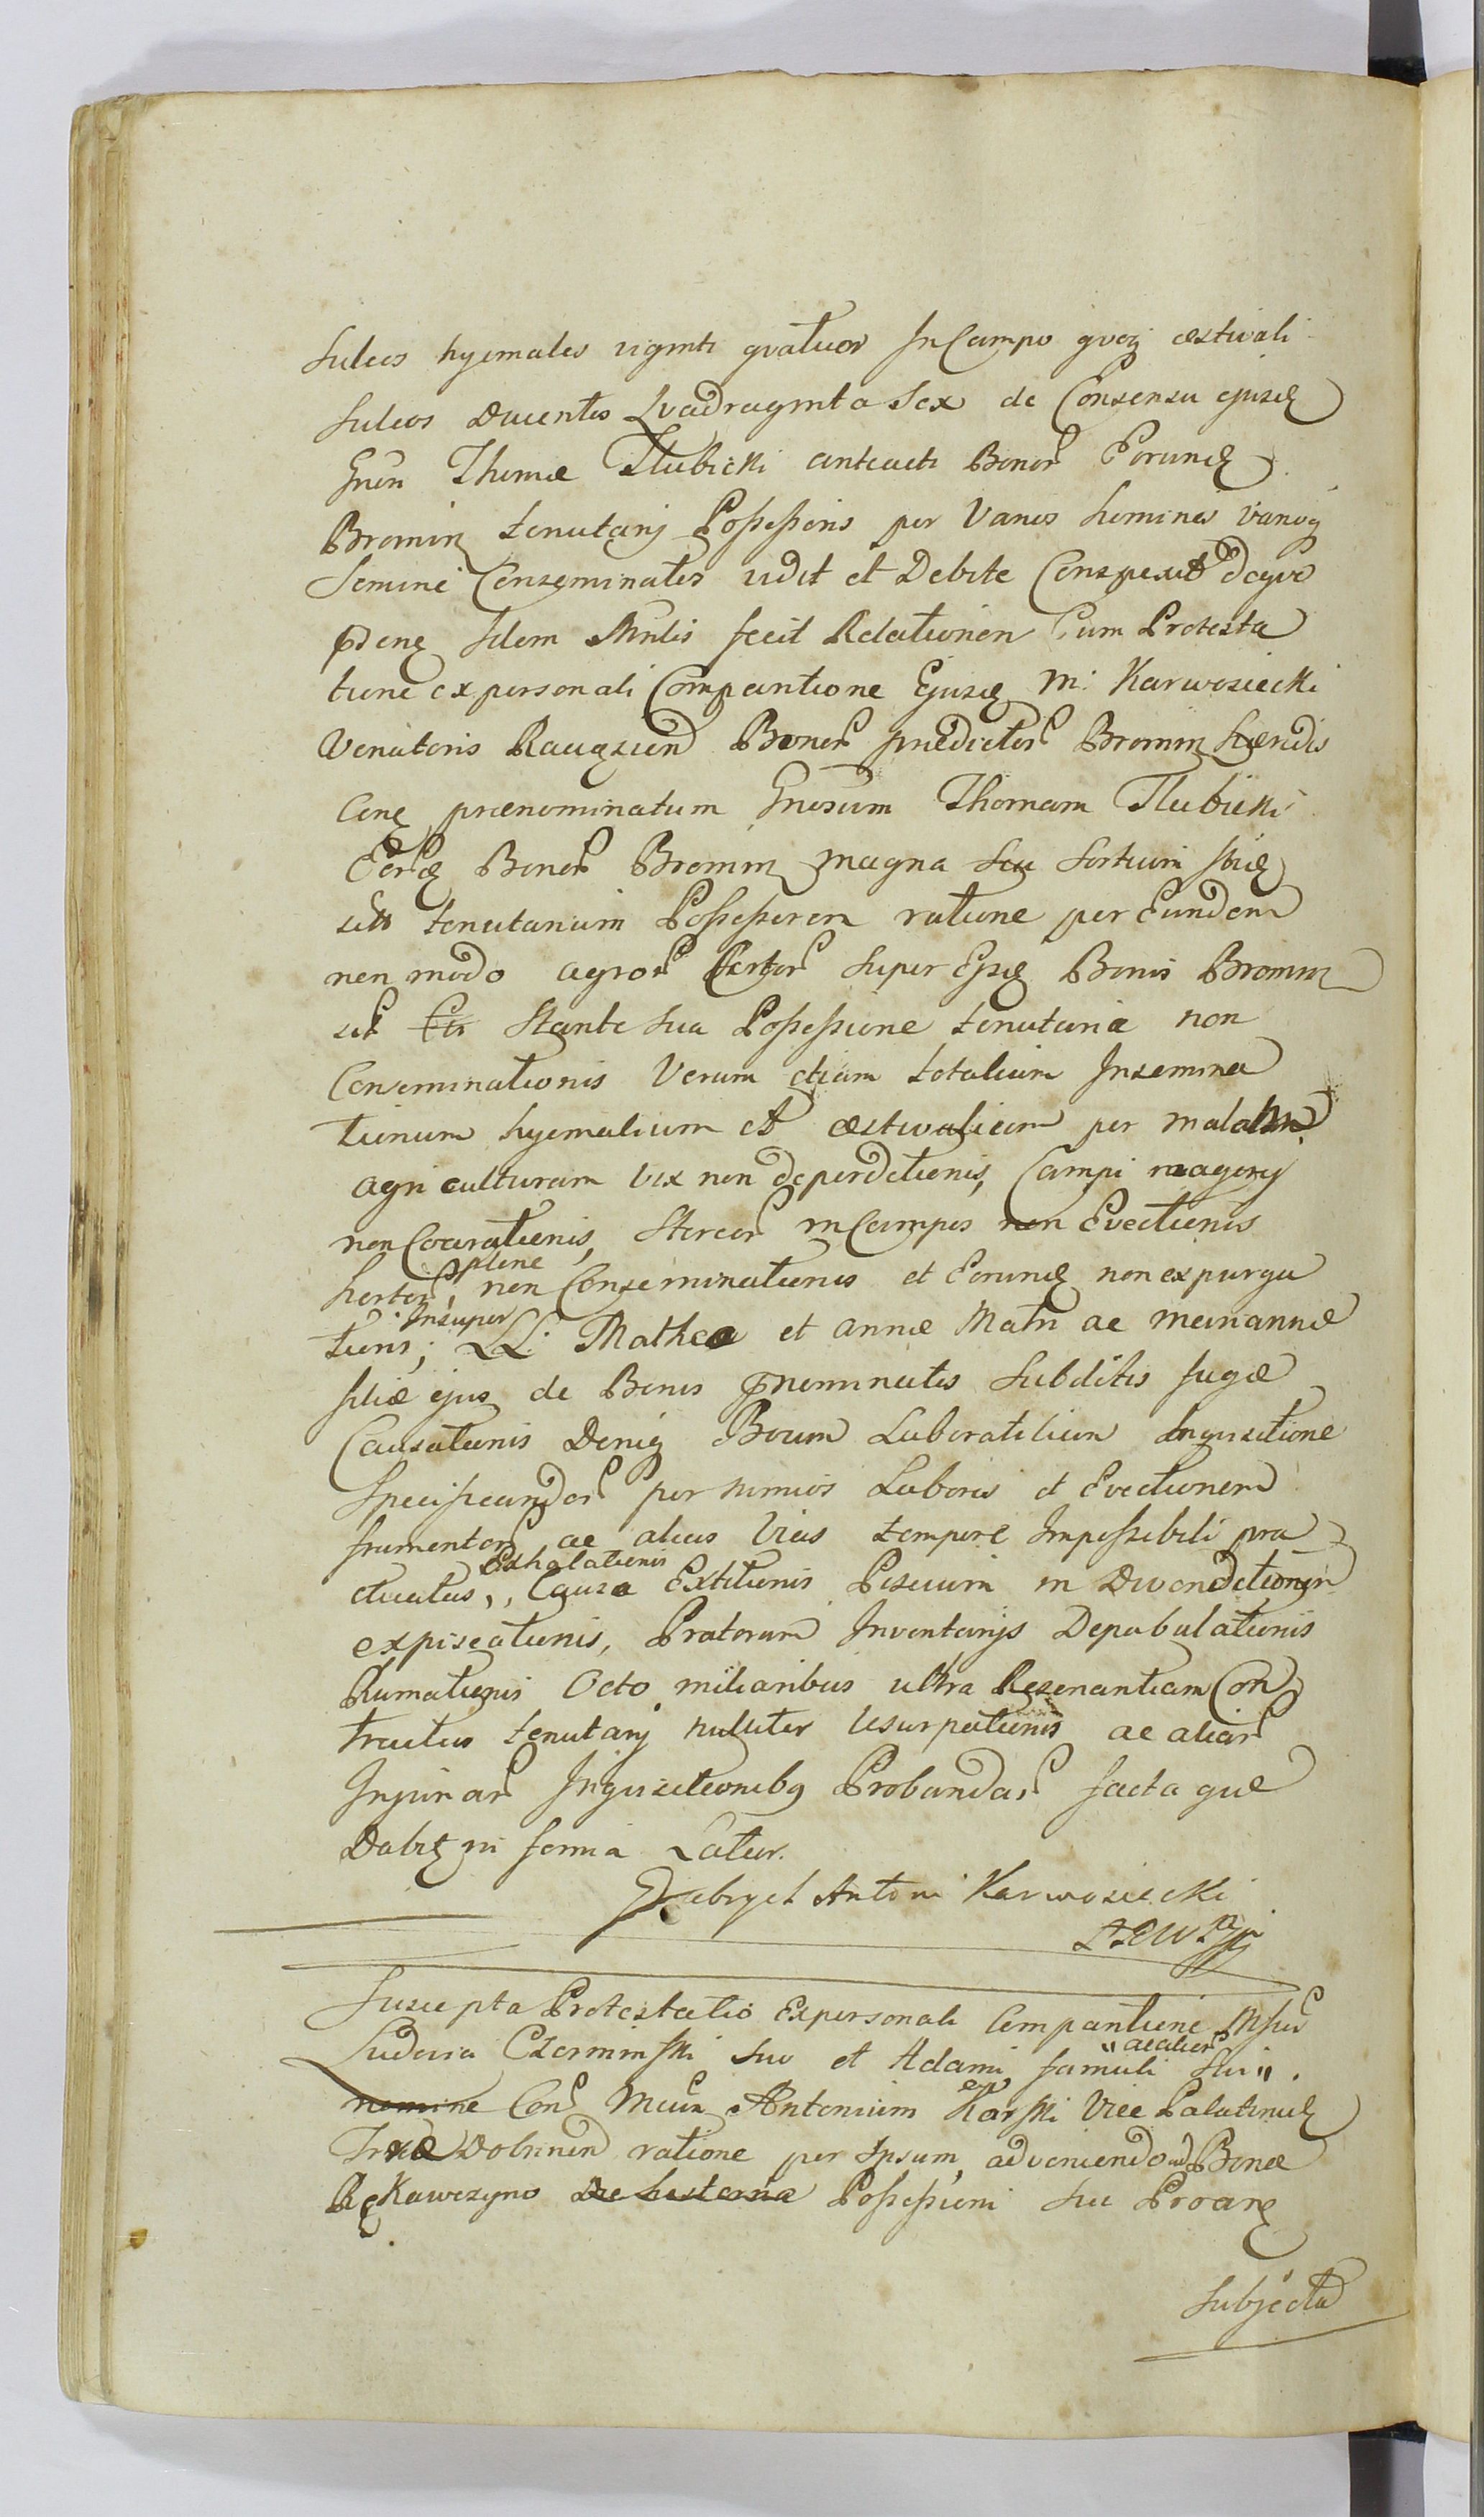 Sulcos hyemales viginti qvatuor In Campo qvoq æstivali
Sulcos Ducentos Qvadraginta Sex de Consensu ejusd
Gnsi Thomæ Tłubicki anteacti Bonor Eorund
Bromin tenutarij Possessoris per Varios homines varioq
Semine Conseminatos vidit et Debite Conspexit deqve
præ idem Mnlis fecit Relationem Cum Protesta
tione ex personali Comparitione Ejusd M: Karwosiecki
Venatoris Raugzien Bonor prædictor Bromin Hæredis
Cong prænominatum Gnosum Thomam Tłubicki
Eorq Bonor Bromin magna seu Sortium
uti tenutarium Possessorem ratione per Eundem
non modo agror Certor super Ejsd Bonis Bromin
Stante sua Possessione tenutaria non
Conseminationis Verum etiam totalium Insemina
tionum hyemalium et æstivalium per malam
agri culturam vix non deperditionis, Campi
non Coarationis, Stercor in Campos non Evectionis
plene
hortor, non Conseminationis et Eorund non expurga
Insuper
tionis; LL. Mathea et Annæ Matri ac Mariannæ
filiæ ejus de Bonis pnominatis Subditis fugæ
Causationis Deniq Boum Laboratilium Inquisitione
Specificandor per nimios Labores et Evectionem
frumentor ac alias Vias tempore Impossibili pra
Exhalationis
cticatas,, Causa Extitionis Piscium in Divenditionem
expiscationis, Pratorum Inventarijs Depabulationis
Rumationis Octo miliaribus ultra Resenantiam Con
tractus tenutarij nulliter Usurpationis ac aliar
Injuriar Inqvisitionibq Probandar facta qve
Dabit in forma Latior.
Gabryel Antoni Karwosiecki
ŁRWRP
Suscepta Protestatio Ex personali Comparitione
"ac alior
Ludovici Czerminski suo et Adami famuli sui".
nomine Con Antonium Karski Vice Palatinud
Træ Dobrinen ratione per Ipsum adveniendo ad Bona
Rękawczyno De hesterna Possessioni suæ
Subjecta